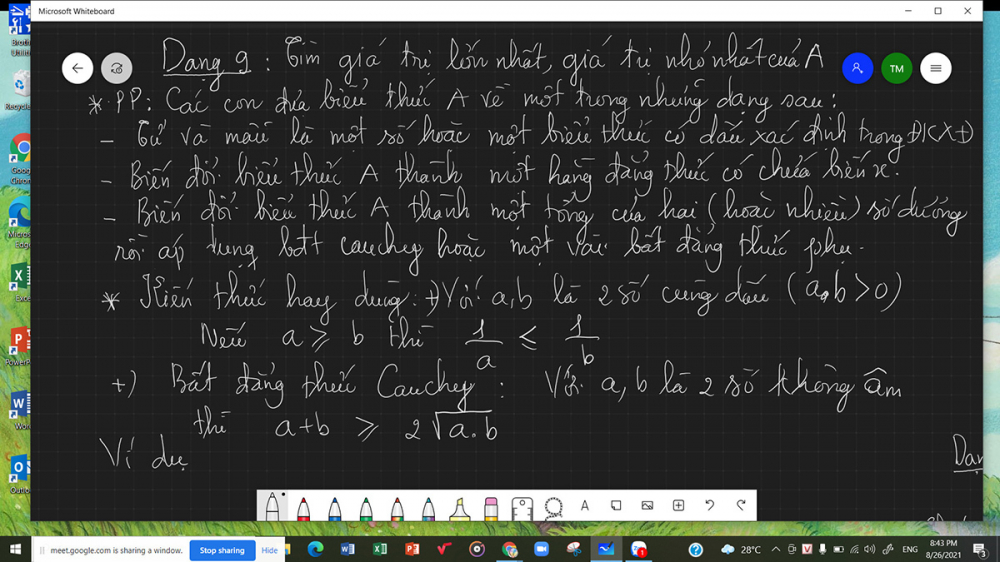 Microsoft Whiteboard
Dạng 9 : Tìm giá trị lớn nhất, giá trị nhỏ nhất của A
* PP: Các con đưa biểu thức A về một trong những dạng sau:
- Tử và mẫu là một số hoặc một biểu thức có dấu xác định trong ĐKXĐ
- Biến đổi biểu thức A thành một hằng đẳng thức có chứa biến x.
- Biến đổi biểu thức A thành một tổng của hai (hoặc nhiều) số dương
rồi áp dụng bđt cauchy hoặc một vài bất đẳng thức phụ.
* Kiến thức hay dùng: +) Với a,b là 2 số cùng dấu (a.b > 0)
Nếu a ≥ b thì 1/a ≤ 1/b
+) Bất đẳng thức Cauchy : Với a, b là 2 số không âm
thì a+b ≥ 2√a.b
Ví dụ
Dạn
TM
meet.google.com is sharing a window.
Stop sharing
Hide
28°C
ENG
8:43 PM
8/26/2021